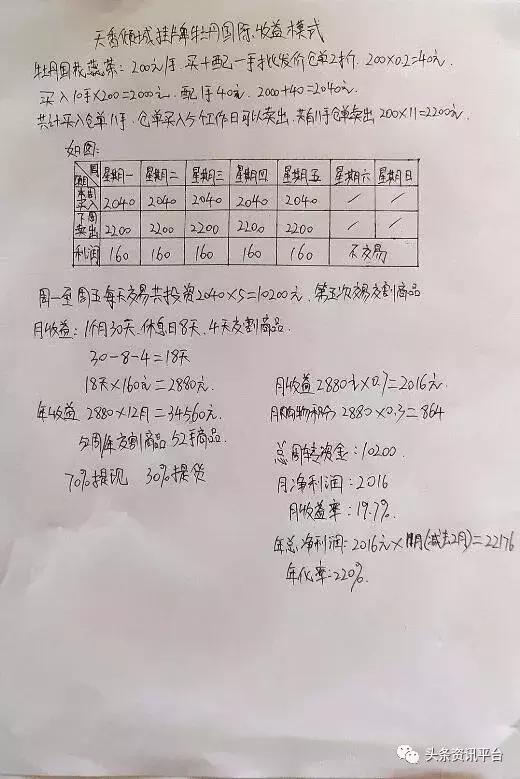 天香倾城挂牌牡丹国际收益模式
牡丹国花蕊茶：200元/手．买十配一手批发价仓单2折．200×0.2=40元．
买入10手×200=2000元．配1手40元．2000+40=2040元．
共计买入仓单11手．仓单买入5个工作日可以卖出．共有11手仓单卖出200×11=2200元．
如图：
周 星期一 星期二 星期三 星期四 星期五 星期六 星期日
项目
本周买入 2040 2040 2040 2040 2040 / /
下周卖出 2200 2200 2200 2200 2200 / /
利润 160 160 160 160 160 不交易
周一至周五每天交易共投资2040×5=10200元．第五次交易交割商品
月收益：1个月30天．休息日8天．4天交割商品．
30-8-4=18天
18天×160元=2880元．
年收益 2880×12月=34560元．
5周年交割商品52手商品．
70%提现 30%提货
月收益2880元×0.7=2016元
月购物积分 2880×0.3=864
总周转资金：10200．
月净利润：2016
月收益率：19.7%．
年总净利润：2016元×11月(减去2月)=22176
年化率：220%．
头条资讯平台